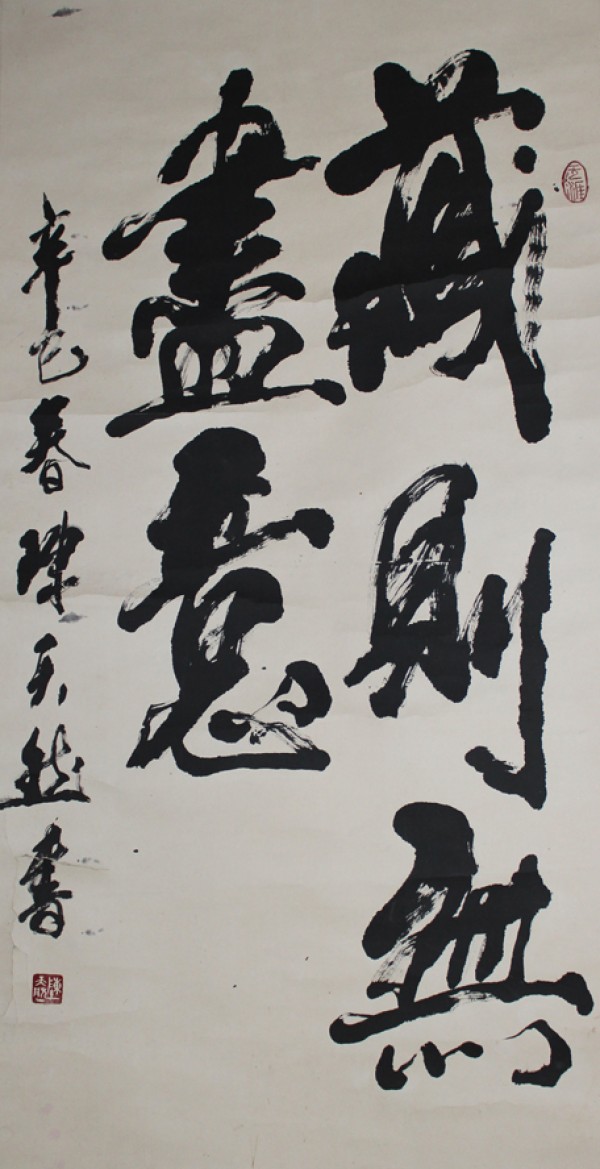 藏則無
盡意
辛巳春陳天然書